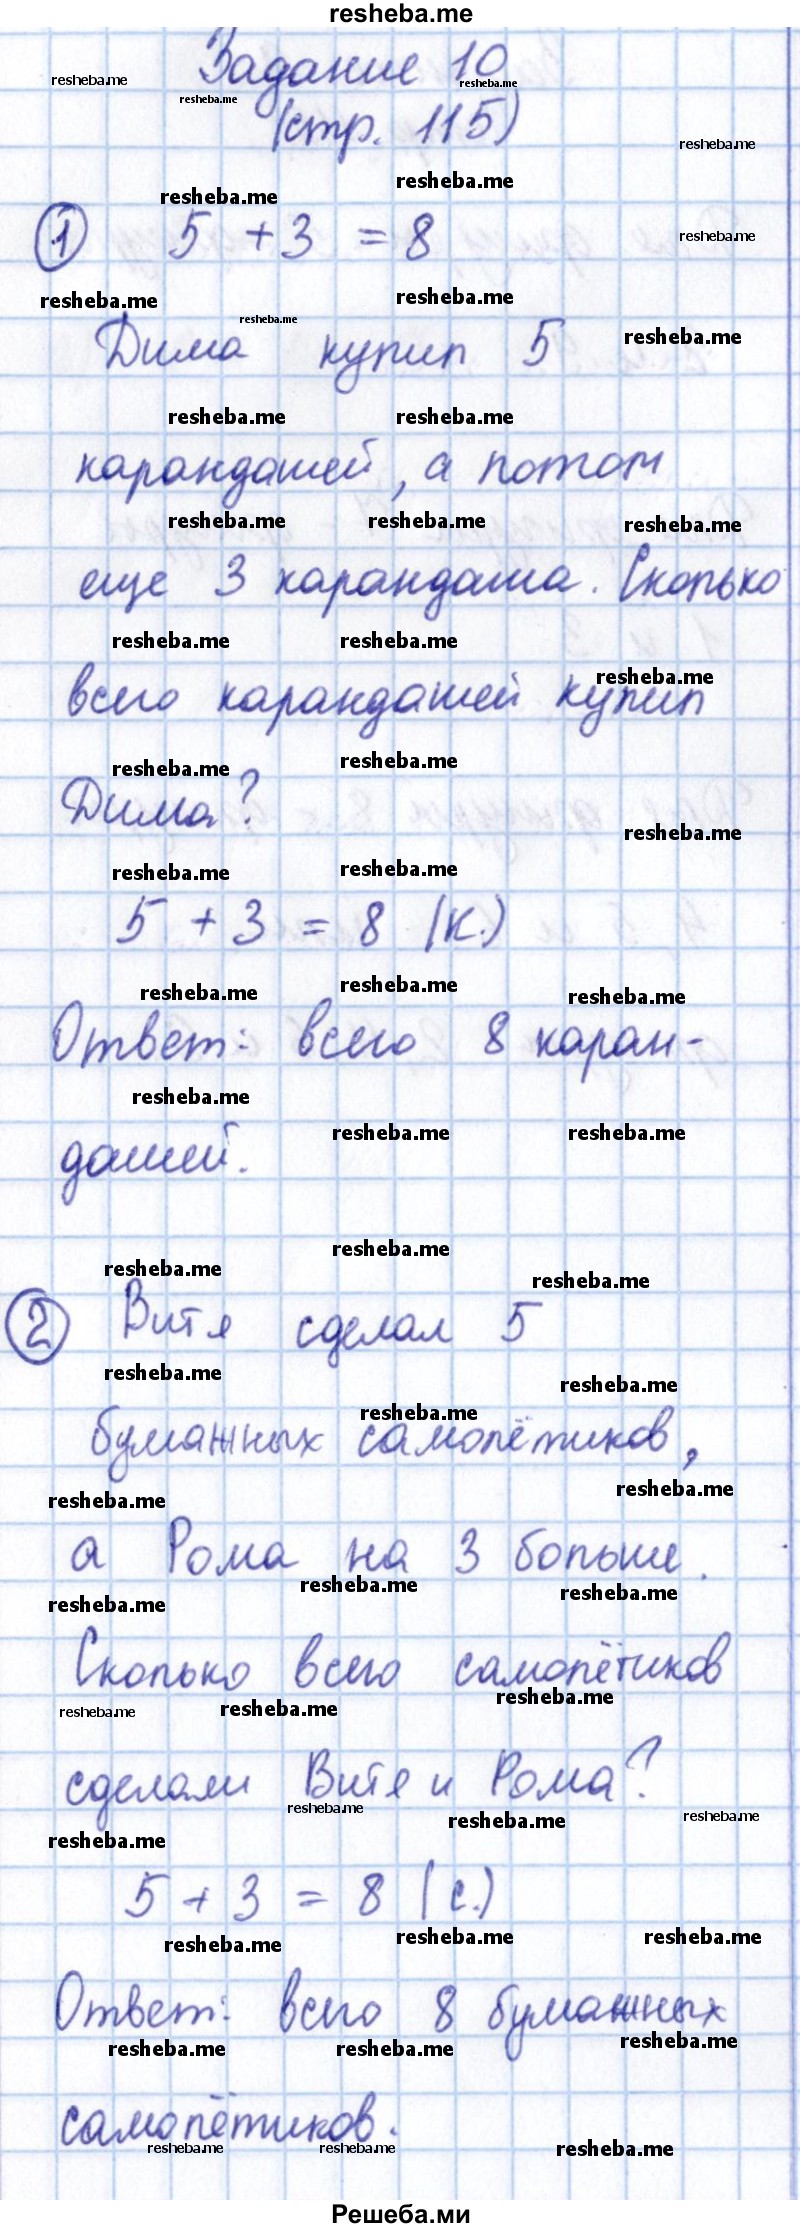 resheba.me
Задание 10
(стр. 115)
① 5 + 3 = 8
Дима купил 5
карандашей, а потом
еще 3 карандаша. Сколько
всего карандашей купил
Дима?
5 + 3 = 8 (к.)
Ответ: всего 8 каран-
дашей.
② Витя сделал 5
бумажных самолётиков,
а Рома на 3 больше.
Сколько всего самолётиков
сделали Витя и Рома?
5 + 3 = 8 (с.)
Ответ: всего 8 бумажных
самолётиков.
Решеба.ми